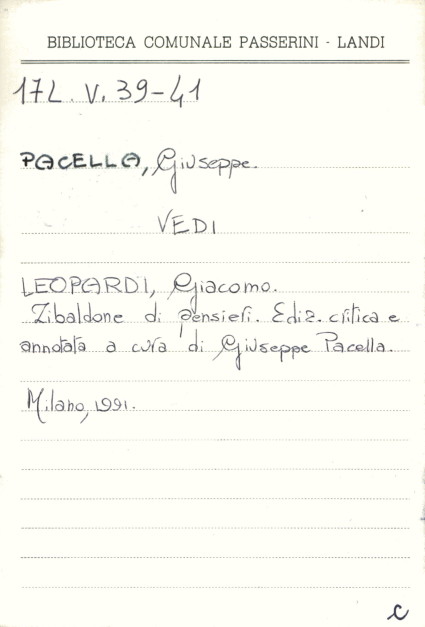 BIBLIOTECA COMUNALE PASSERINI - LANDI
17L. V. 39-41
PACELLA, Giuseppe.
VEDI
LEOPARDI, Giacomo.
Zibaldone di pensieri. Ediz. critica e
annotata a cura di Giuseppe Pacella.
Milano, 1991.
C